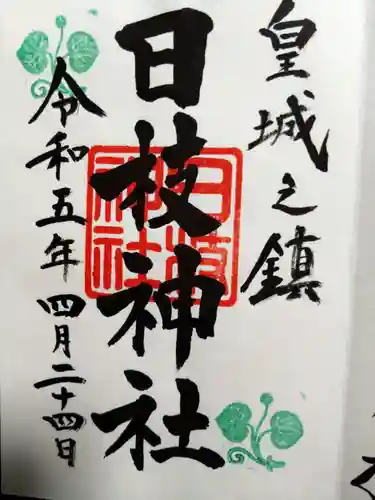 皇城之鎮
日枝神社
令和五年 四月二十四日
日枝神社